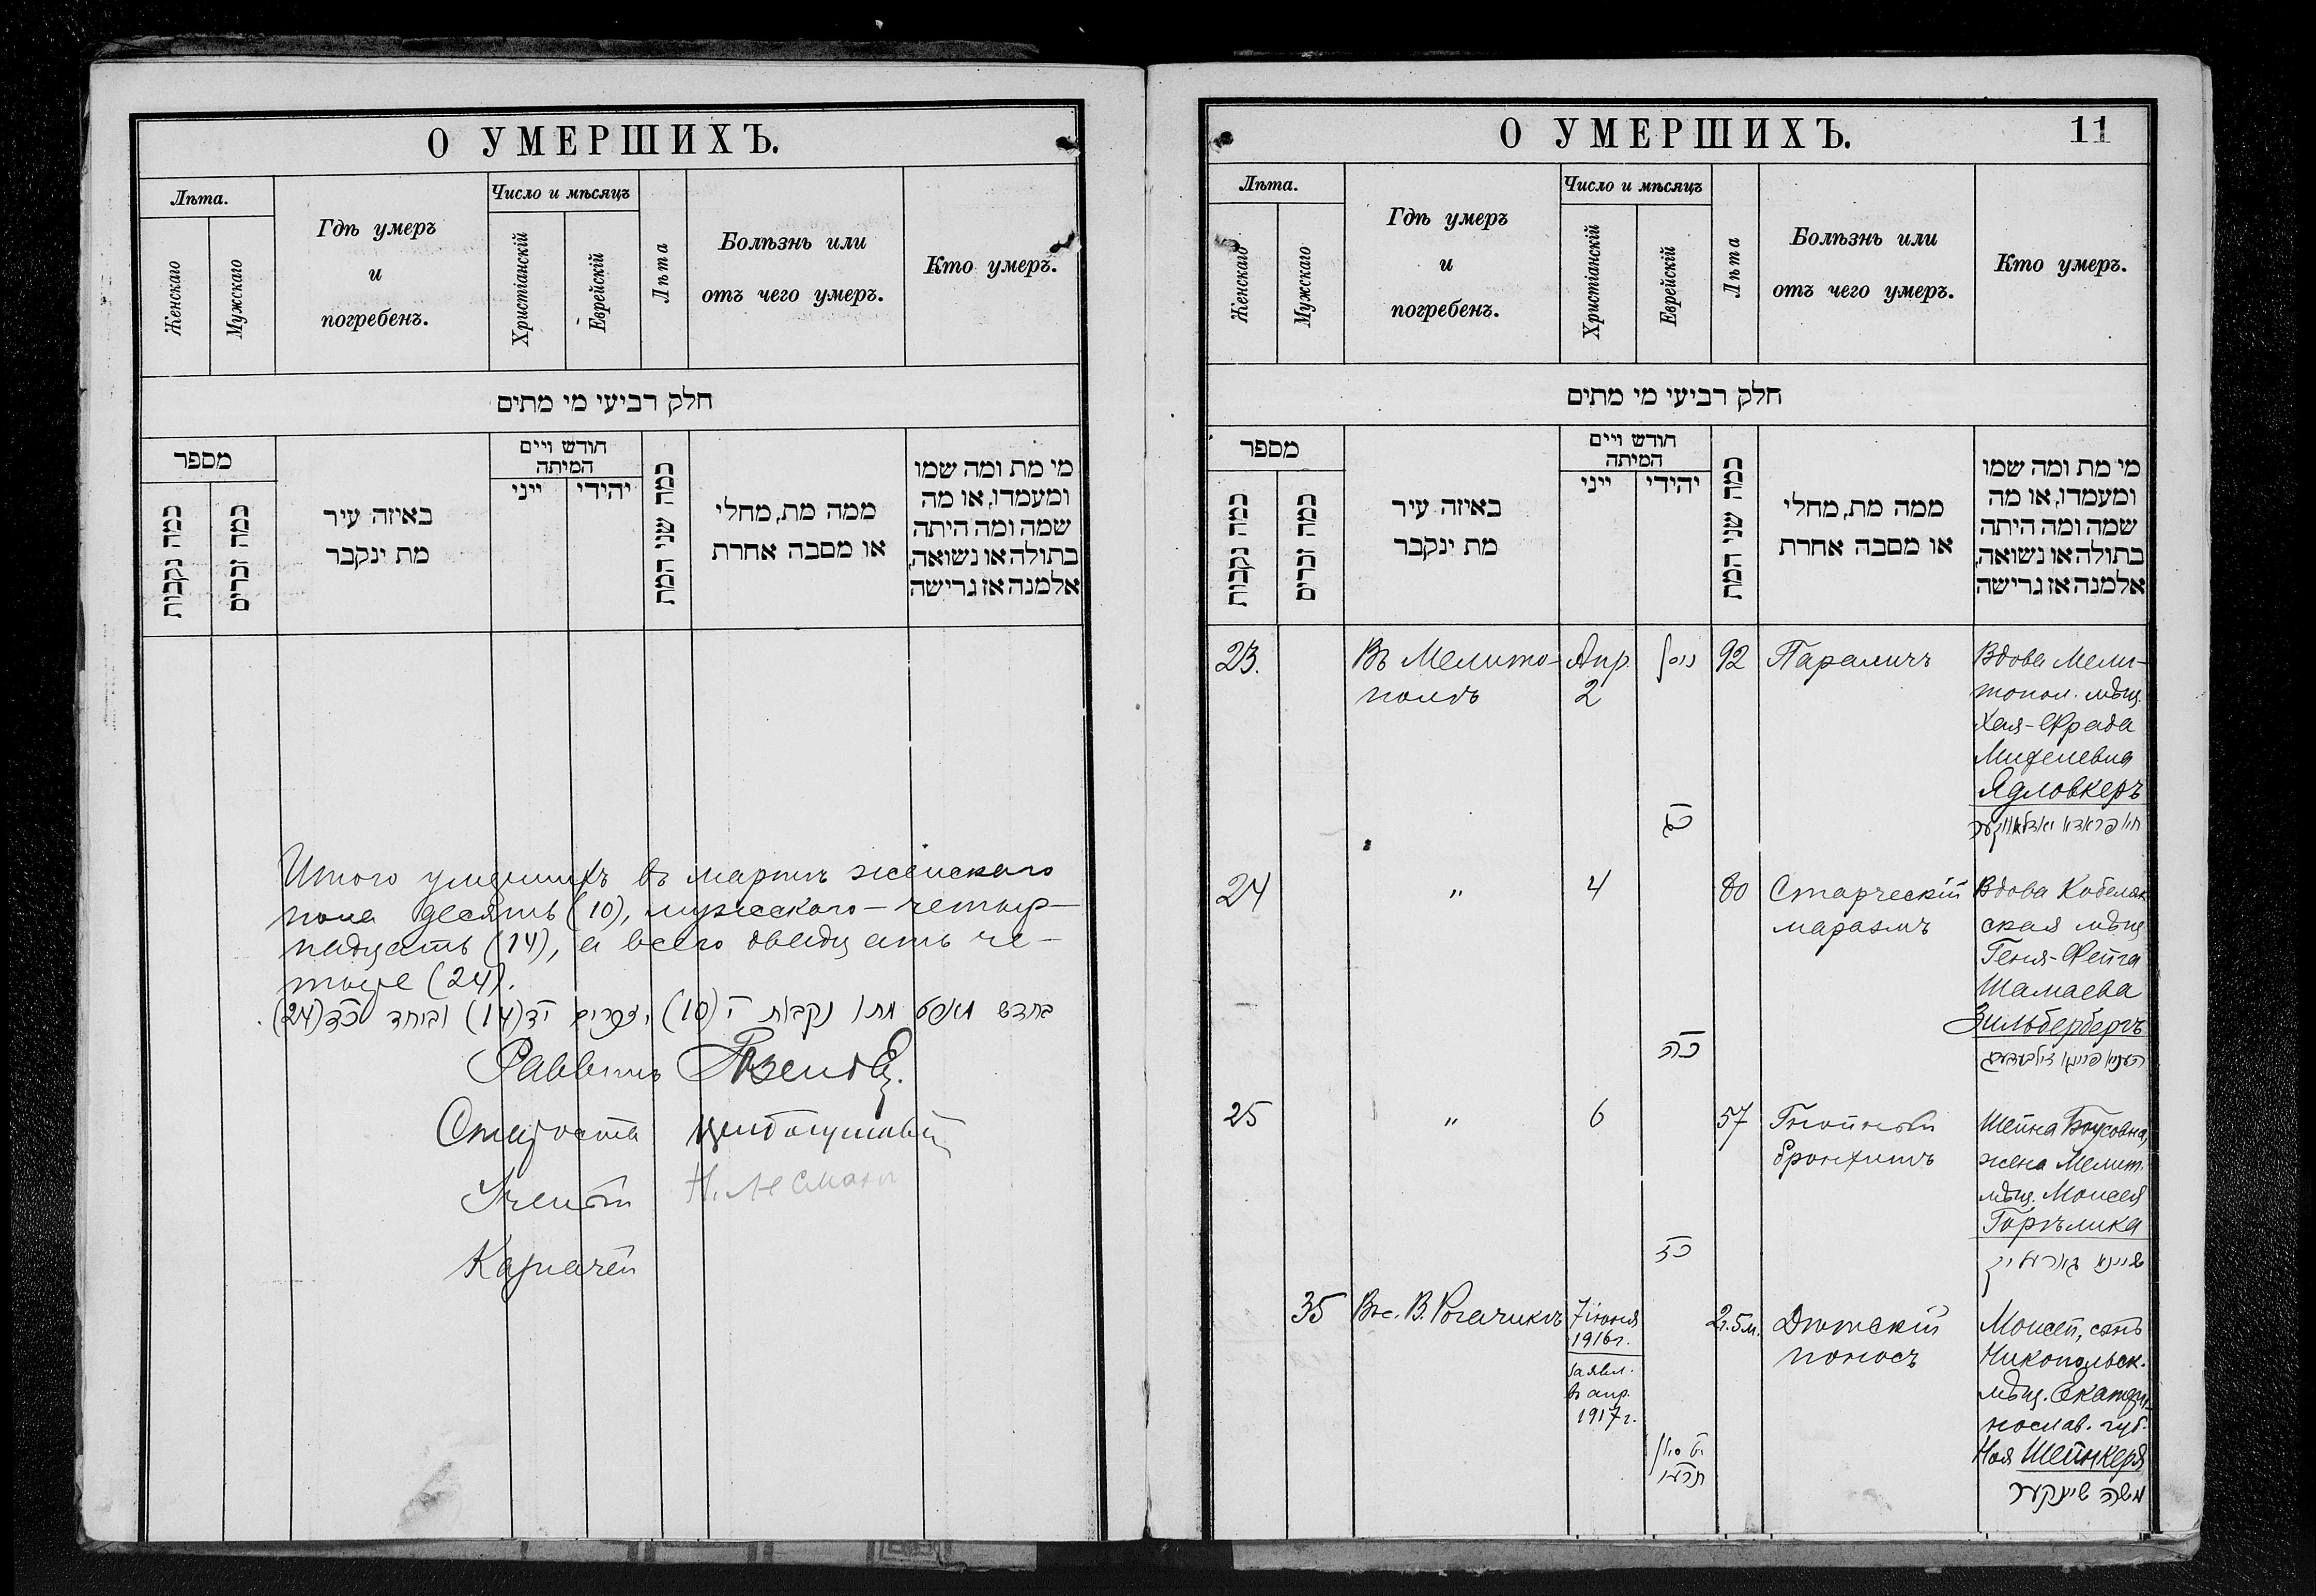 О УМЕРШИХЪ.
Лѣта.
Женскаго
Мужскаго
Гдѣ умеръ
и
погребенъ.
Число и мѣсяцъ
Христіанскій
Еврейскій
Лѣта
Болѣзнь или
отъ чего умеръ.
Кто умеръ.
חלק רביעי מי מתים
מספר
כמה נקבות
כמה זכרים
באיזה עיר
מת ינקבר
חודש ויים
המיתה
ייני
יהידי
כמה שני המת
ממה מת, מחלי
או מסבה אחרת
מי מת ומה שמו
ומעמדו, או מה
שמה ומה היתה
בתולה או נשואה,
אלמנה אז גרישה
Итого умершихъ въ мартѣ женскаго
пола десять (10), мужескаго - четыр-
надцать (14), а всего двадцать че-
тыре (24).
בחדש מארט מתו נקבות י (10) זכרים יד (14) וביחד כד (24).
Раввинъ
Староста
Ученый
Казначей
О УМЕРШИХЪ.
11
Лѣта.
Женскаго
Мужскаго
Гдѣ умеръ
и
погребенъ.
Число и мѣсяцъ
Христіанскій
Еврейскій
Лѣта
Болѣзнь или
отъ чего умеръ.
Кто умеръ.
חלק רביעי מי מתים
מספר
כמה נקבות
כמה זכרים
באיזה עיר
מת ינקבר
חודש ויים
המיתה
ייני
יהידי
כמה שני המת
ממה מת, מחלי
או מסבה אחרת
מי מת ומה שמו
ומעמדו, או מה
שמה ומה היתה
בתולה או נשואה,
אלמנה אז גרישה
23.
Въ Мелито-
полѣ
Апр.
2
ניסן
כג
92
Параличъ
Вдова Мели-
топол. мѣщ.
Хая-Фрада
Михелевна
Ядловкеръ
חיו פראדא יאדלאווקער
24
"
4
כה
80
Старческій
маразмъ
Вдова Кобеляк
ская мѣщ.
Геня-Фейга
Шамаева
Зильбербергъ
25
"
6
כז
57
Гнойный
бронхитъ
Шейна Боусовна,
жена Мелит.
мѣщ. Моисея
Горѣлика
שיינא גארעליק
35
Въ с. В. Рогачикѣ
7 іюня
1916 г.
заявл.
въ апр.
1917 г.
יט סיון
תרעו
2 г. 5 м.
Дѣтскій
поносъ
Моисей, сынъ
Никопольск.
мѣщ. Екатери-
нослав. губ.
Ноя Шейнкера
משה שיינקער